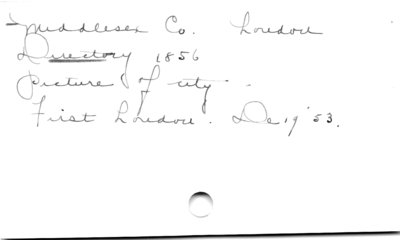 Middlesex Co. London
Directory 1856
picture of city.
First London. De 19 '53.